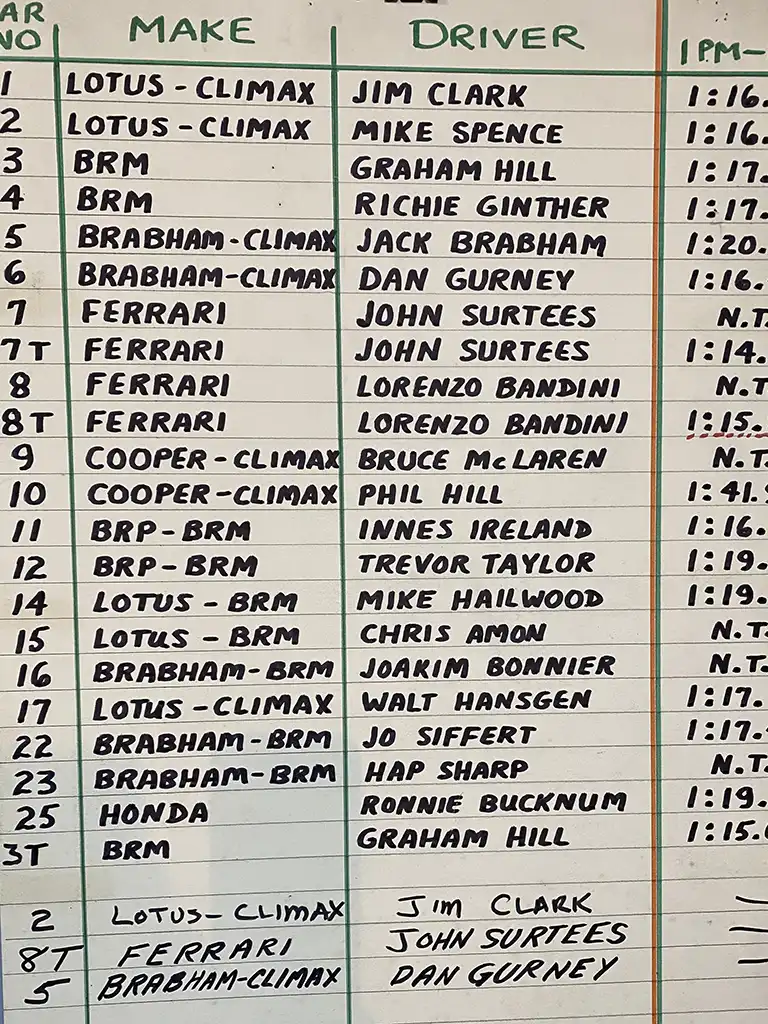 AR NO MAKE DRIVER 1PM-
1 LOTUS - CLIMAX JIM CLARK 1:16.
2 LOTUS - CLIMAX MIKE SPENCE 1:16.
3 BRM GRAHAM HILL 1:17.
4 BRM RICHIE GINTHER 1:17.
5 BRABHAM-CLIMAX JACK BRABHAM 1:20.
6 BRABHAM-CLIMAX DAN GURNEY 1:16.
7 FERRARI JOHN SURTEES N.T.
7T FERRARI JOHN SURTEES 1:14.
8 FERRARI LORENZO BANDINI N.T
8T FERRARI LORENZO BANDINI 1:15.
9 COOPER-CLIMAX BRUCE McLAREN N.T.
10 COOPER-CLIMAX PHIL HILL 1:41.
11 BRP-BRM INNES IRELAND 1:16.
12 BRP-BRM TREVOR TAYLOR 1:19.
14 LOTUS - BRM MIKE HAILWOOD 1:19.
15 LOTUS - BRM CHRIS AMON N.T.
16 BRABHAM-BRM JOAKIM BONNIER N.T.
17 LOTUS - CLIMAX WALT HANSGEN 1:17.
22 BRABHAM-BRM JO SIFFERT 1:17.
23 BRABHAM-BRM HAP SHARP N.T.
25 HONDA RONNIE BUCKNUM 1:19.
3T BRM GRAHAM HILL 1:15.
2 LOTUS-CLIMAX Jim CLARK —
8T FERRARI JOHN SURTEES —
5 BRABHAM-CLIMAX DAN GURNEY —